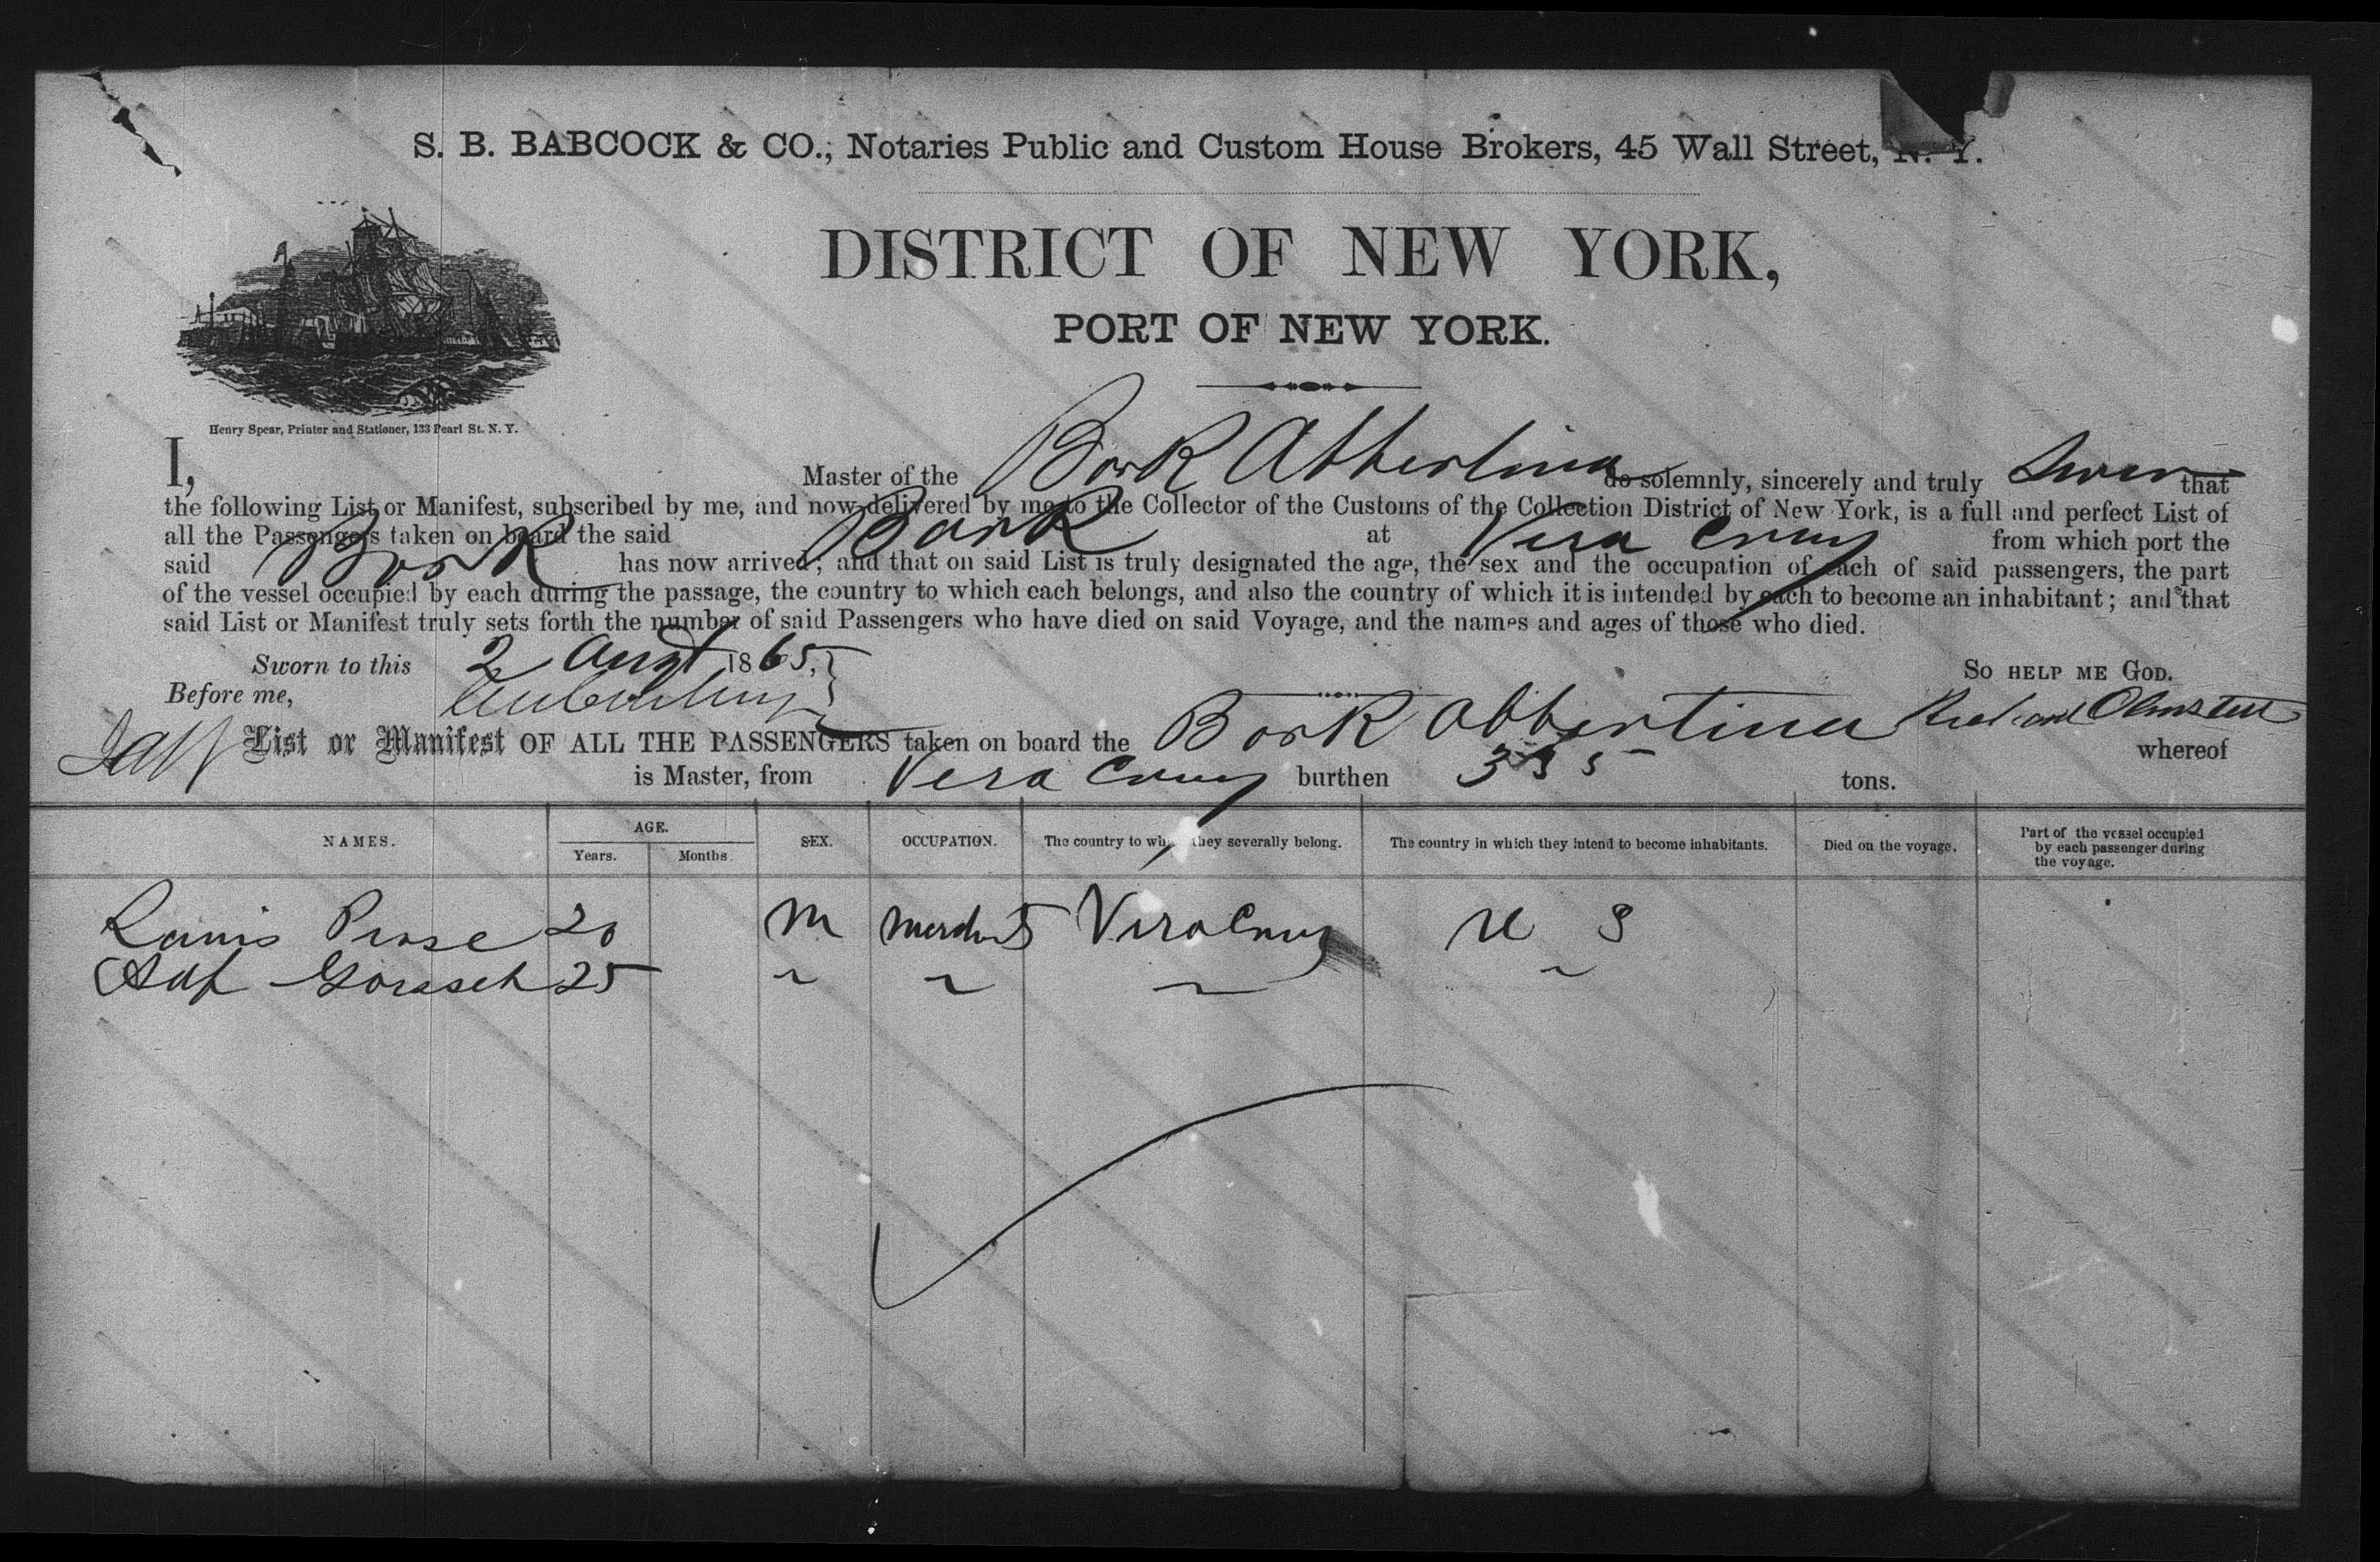 S. B. BABCOCK & CO., Notaries Public and Custom House Brokers, 45 Wall Street, N. Y.
DISTRICT OF NEW YORK,
PORT OF NEW YORK.
Henry Spear, Printer and Stationer, 133 Pearl St. N. Y.
I, Master of the Bark Abbertina do solemnly, sincerely and truly Swear that
the following List or Manifest, subscribed by me, and now delivered by me to the Collector of the Customs of the Collection District of New York, is a full and perfect List of
all the Passengers taken on board the said Bark at Vera Cruz from which port the
said Bark has now arrived; and that on said List is truly designated the age, the sex and the occupation of each of said passengers, the part
of the vessel occupied by each during the passage, the country to which each belongs, and also the country of which it is intended by each to become an inhabitant; and that
said List or Manifest truly sets forth the number of said Passengers who have died on said Voyage, and the names and ages of those who died.
Sworn to this 2 Augt 1865, SO HELP ME GOD.
Before me,
List or Manifest OF ALL THE PASSENGERS taken on board the Bark Abbertina whereof
is Master, from Vera Cruz burthen 335 tons.
NAMES. AGE. Years. Months. SEX. OCCUPATION. The country to which they severally belong. The country in which they intend to become inhabitants. Died on the voyage. Part of the vessel occupied by each passenger during the voyage.
20 M Merchant Vera Cruz U S
25 " " " "